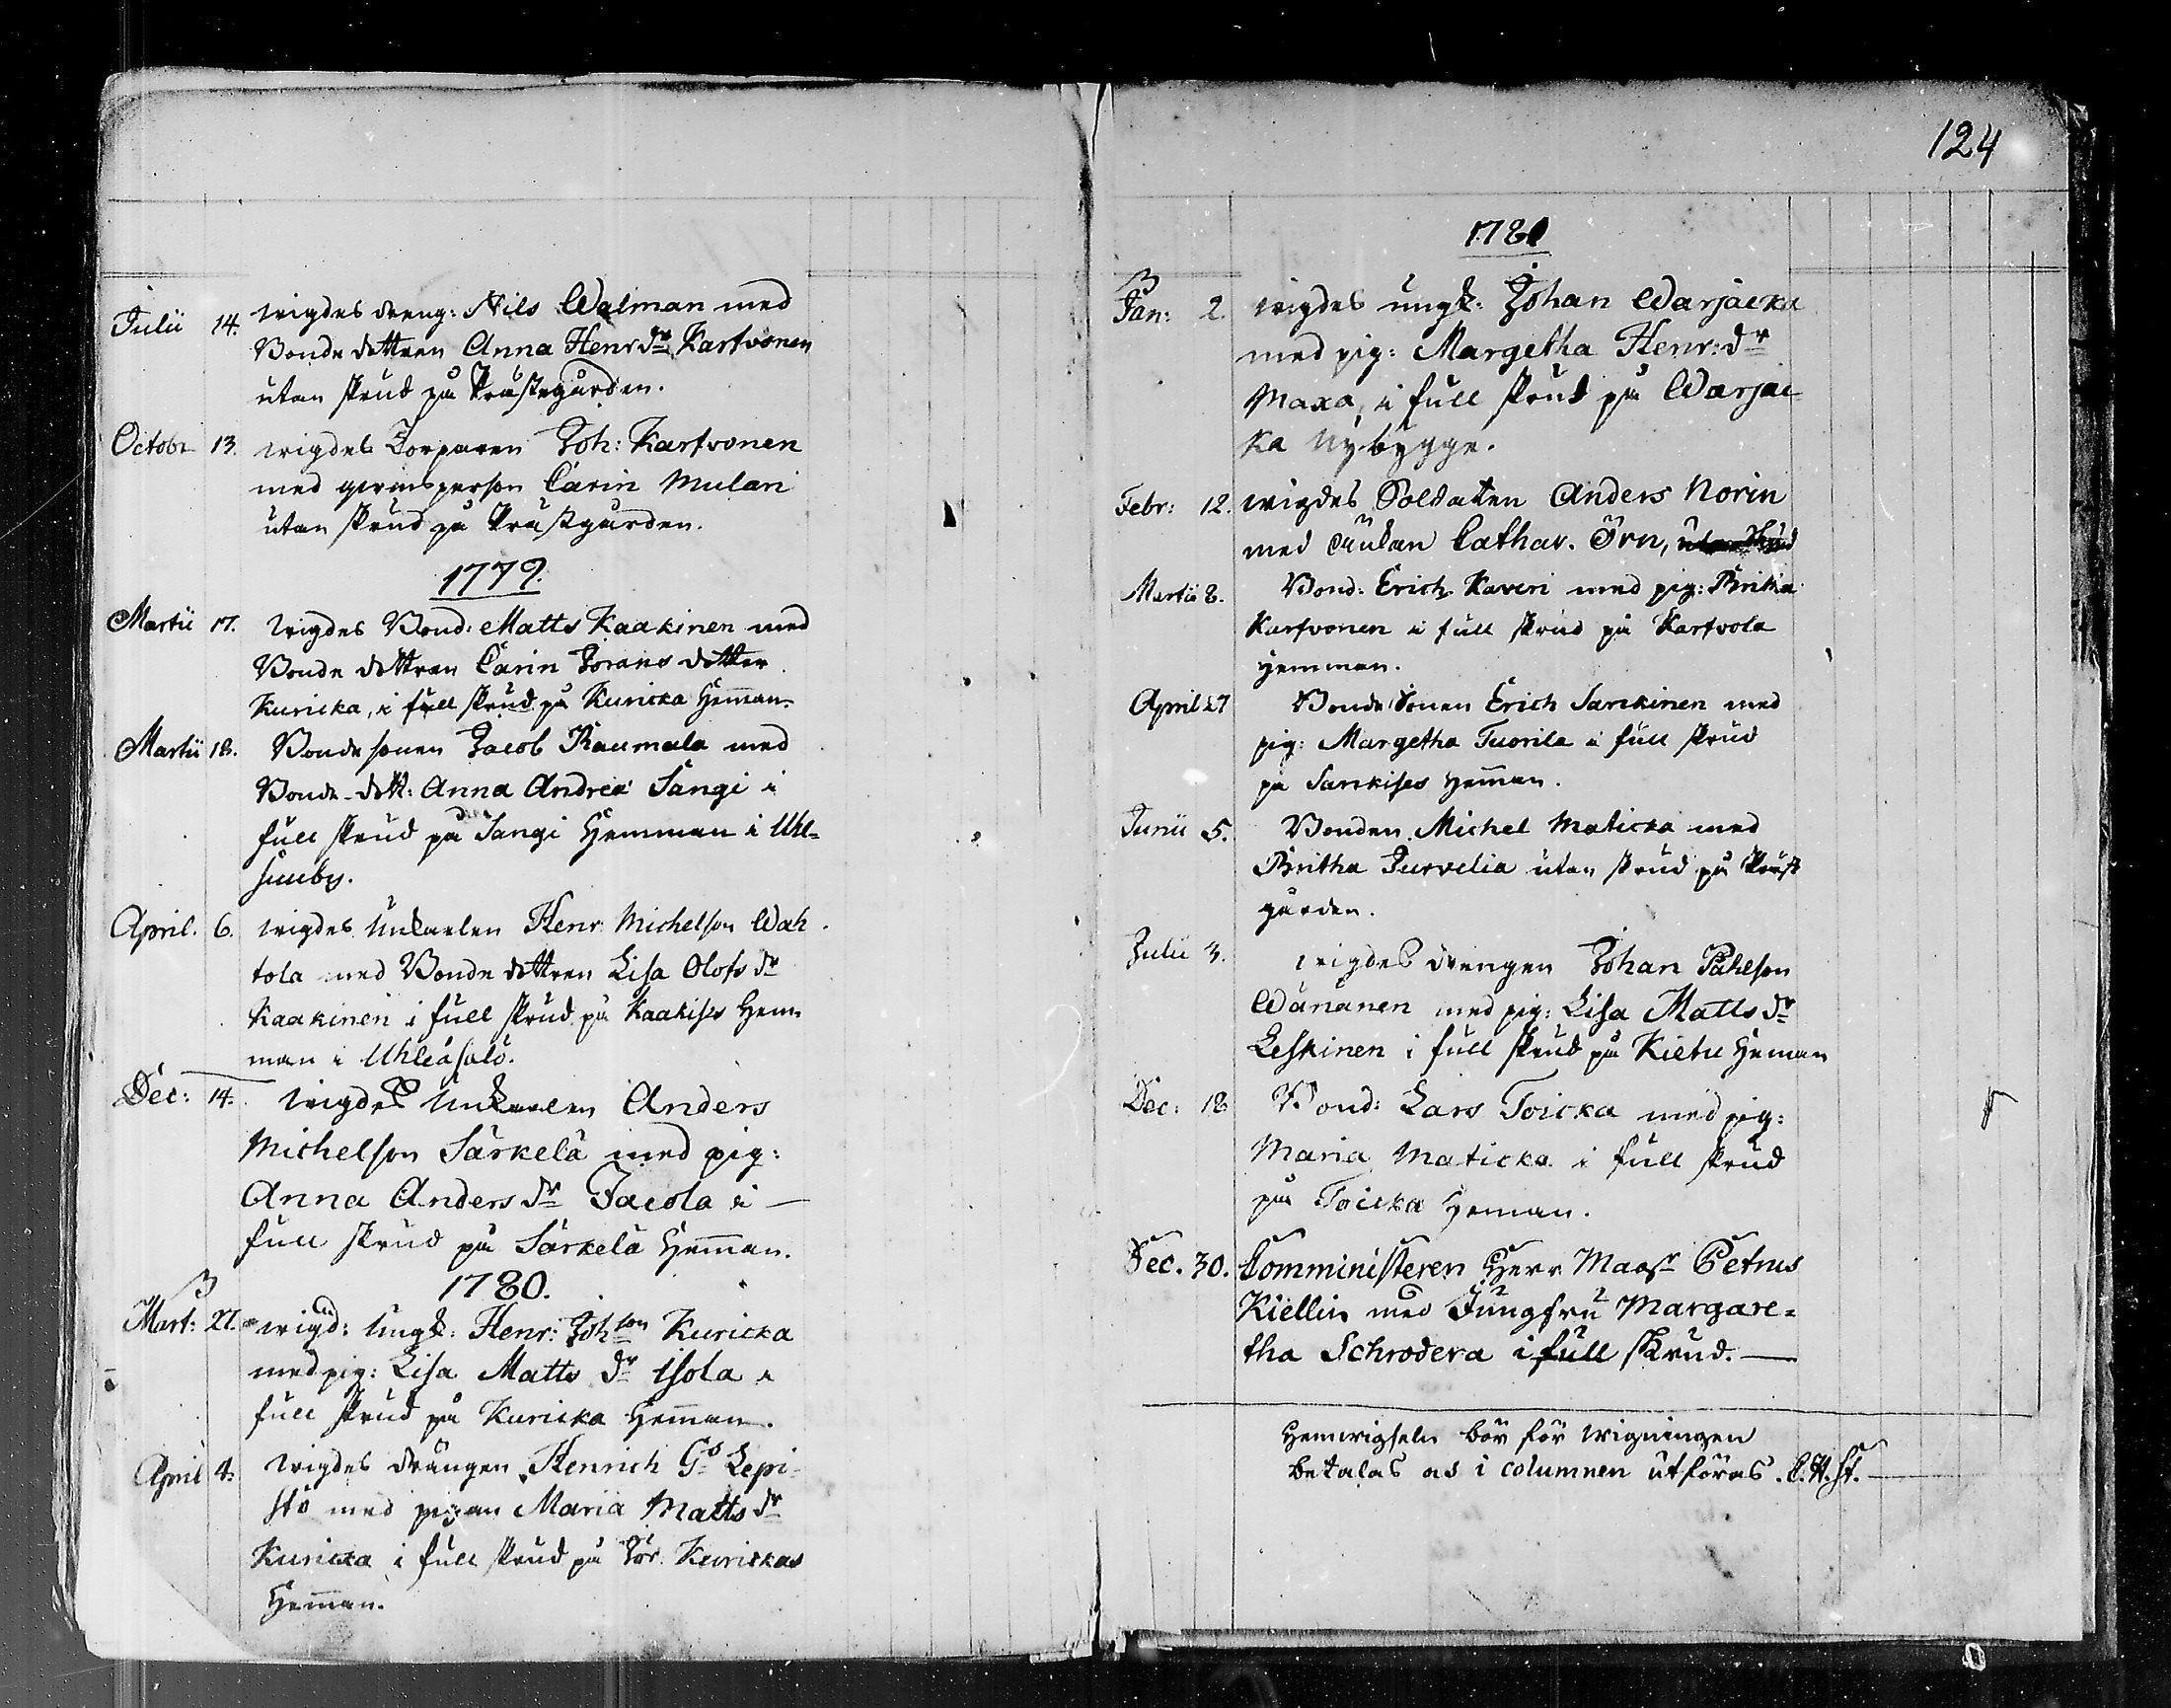 124
Julii 14. wigdes dreng: Nils Walman med
Bonde dottren Anna Henrsdr Karfvonen
utan skrud på Prästegården.
Octobr 13. wigdes Torparen Joh: Karfvonen
med qvinsperson Carin Mulari
utan skrud på Prästgården.
1779.
Martii 17. wigdes Bond: Matts Kaakinen med
Bonde dottren Carin Görans dotter
Kuricka, i full skrud på Kuricka Heman.
Martii 18. Bonde sonen Jacob Raumala med
Bonde-dott: Anna Andreæ Sangi i
full skrud på Sangi Hemman i Uhl-
suuby.
April. 6. wigdes Unkarlen Henr Michelson Wah
tola med Bonde dottren Lisa Olofs dr
Kaakinen i full skrud på Kaakises Hem
man i Uhleåsalo.
Dec: 14. wigdes Unkarlen Anders
Michelson Särkelä med pig:
Anna Anders dr Jacola i
full skrud på Särkelä Heman.
1780.
Mart: 27. wigd: ungk: Henr: Johson Kuricka
med pig: Lisa Matts dr Isola i
full skrud på Kuricka Heman.
April 4. wigdes drängen Henrich Gs Lepi-
stö med pigan Maria Matts dr
Kuricka i full skrud på Gör. Kurickas
Heman.
1781
Jan: 2. wigdes ungk: Johan Warjacka
med pig: Margetha Henr: dr
Maxa, i full skrud på Warjac
ka Nybygge.
Febr: 12. wigdes Soldaten Anders Norin
med änkan Cathar. Örn, utan skrud
Martii 8. Bond: Erich Kaveri med pig: Britha
Karfvonen i full skrud på Karfvola
Hemman.
April 27 Bonde Sonen Erich Sarkinen med
pig: Margetha Tuorila i full skrud
på Sarkises Heman.
Junii 5. Bonden Michel Maticka med
Britha Jurvelia utan skrud på Präst
gården.
Julii 3. wigdes drengen Johan Påhlson
Wänänen med pig: Lisa Matts dr
Leskinen i full skrud på Kietu Heman
Dec: 18 Bond: Lars Toicka med pig:
Maria Maticka i full skrud
på Toicka Heman.
Dec. 30. Comministeren Herr Magr Petrus
Kiellin med Jungfru Margare-
tha Schrodera i full skrud.
Hemvigseln bör för wigningen
betalas os i columnen utföras.